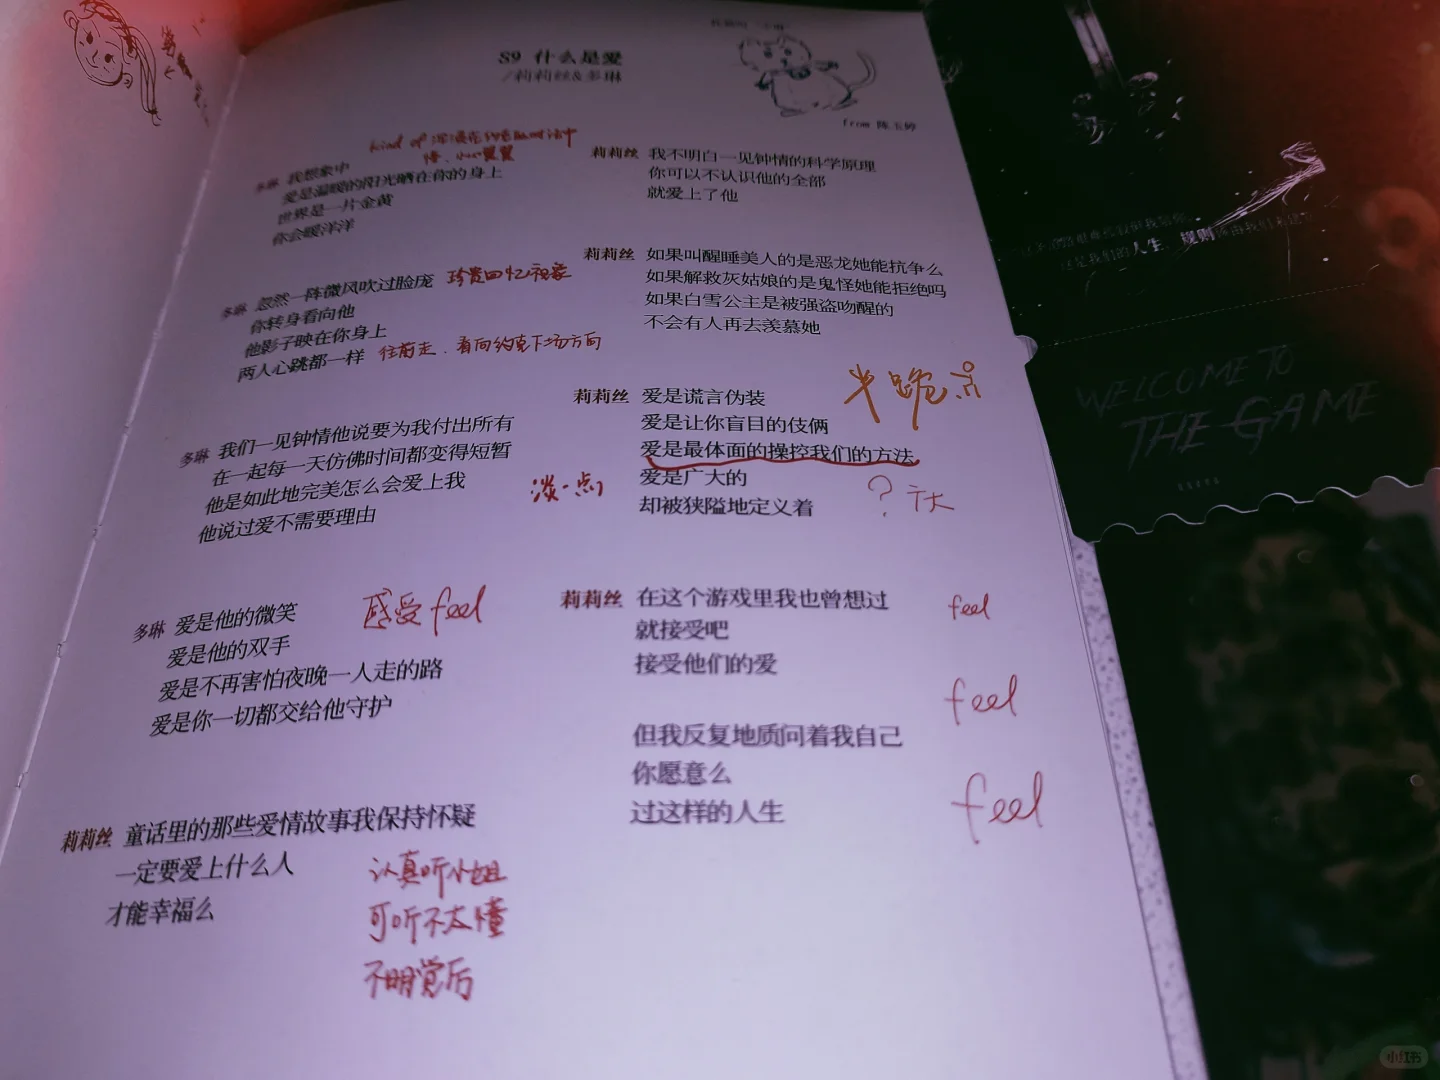 S9 什么是爱
/莉莉丝&多琳
from 陈玉婷
kind of
多琳 我想象中
爱是温暖的阳光晒在你的身上
世界是一片金黄
你会暖洋洋
多琳 忽然一阵微风吹过脸庞 珍贵回忆
你转身看向他
他影子映在你身上
两人心跳都一样 往前走、看向约克下场方向
多琳 我们一见钟情他说要为我付出所有
在一起每一天仿佛时间都变得短暂
他是如此地完美怎么会爱上我
他说过爱不需要理由
淡一点
多琳 爱是他的微笑
爱是他的双手
爱是不再害怕夜晚一人走的路
爱是你一切都交给他守护
感受 feel
莉莉丝 童话里的那些爱情故事我保持怀疑
一定要爱上什么人
才能幸福么
认真听小姐
可听不太懂
不明觉厉
莉莉丝 我不明白一见钟情的科学原理
你可以不认识他的全部
就爱上了他
莉莉丝 如果叫醒睡美人的是恶龙她能抗争么
如果解救灰姑娘的是鬼怪她能拒绝吗
如果白雪公主是被强盗吻醒的
不会有人再去羡慕她
莉莉丝 爱是谎言伪装
爱是让你盲目的伎俩
爱是最体面的操控我们的方法
爱是广大的
却被狭隘地定义着
半跪
?
莉莉丝 在这个游戏里我也曾想过
就接受吧
接受他们的爱
feel
feel
但我反复地质问着我自己
你愿意么
过这样的人生
feel
这是我们的人生，规则
WELCOME TO
THE GAME
小红书